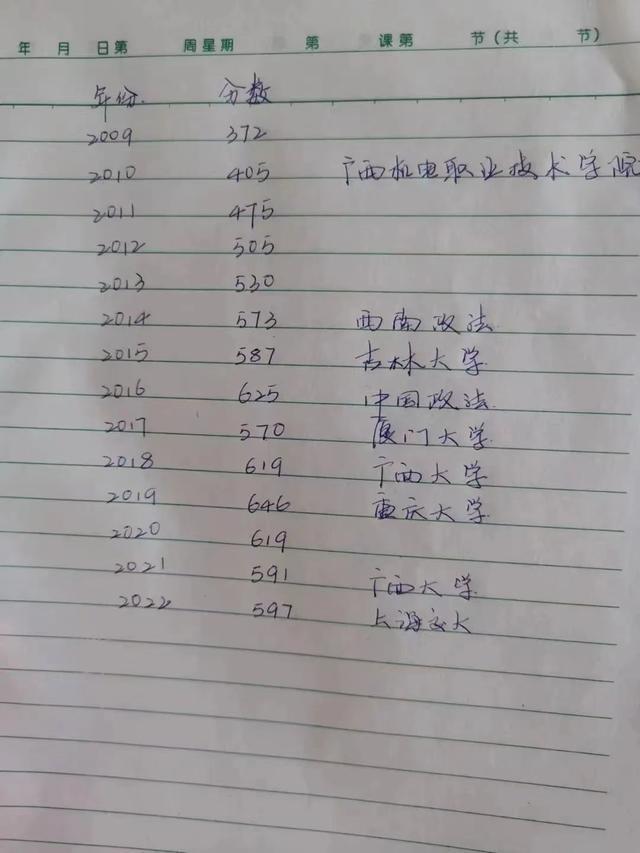 年 月 日第 周星期 第 课第 节(共 节)
年份. 分数
2009 372
2010 405 广西机电职业技术学院
2011 475
2012 505
2013 530
2014 573 西南政法
2015 587 吉林大学
2016 625 中国政法
2017 570 厦门大学
2018 619 广西大学
2019 646 重庆大学
2020 619
2021 591 广西大学
2022 597 上海交大